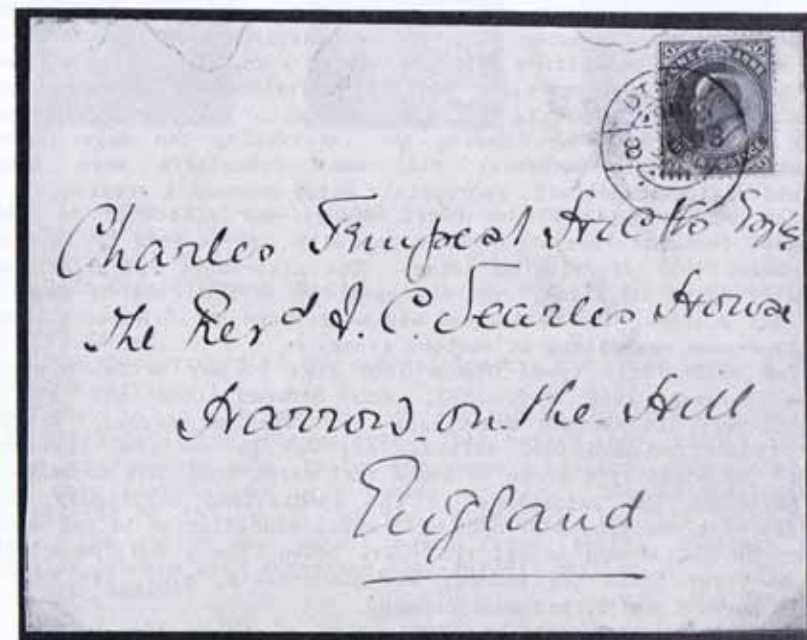 Charles Tempest Hicks Esq
The Revd J. C. Searles House
Harrow-on-the-Hill
England